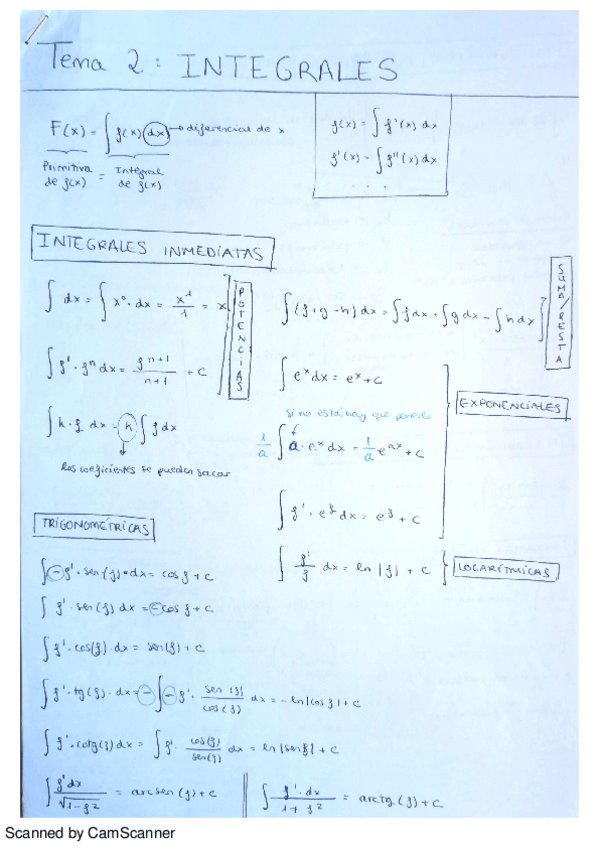 Tema 2: INTEGRALES
F(x) = ∫ f(x) dx → diferencial de x
Primitiva de f(x) = Integral de f(x)
f(x) = ∫ f'(x) dx
f'(x) = ∫ f''(x) dx
. . .
INTEGRALES INMEDIATAS
∫ dx = ∫ x⁰ · dx = x¹/1 = x
∫ f' · fⁿ dx = fⁿ⁺¹/n+1 + C
∫ k · f dx = k ∫ f dx
los coeficientes se pueden sacar
POTENCIAS
∫ (f+g-h) dx = ∫ f dx + ∫ g dx - ∫ h dx
SUMA/RESTA
∫ eˣ dx = eˣ + C
si no está, hay que ponerlo
1/a ∫ a · eˣ dx = 1/a eᵃˣ + C
∫ f' · eᶠ dx = eᶠ + C
EXPONENCIALES
∫ f'/f dx = ln |f| + C
LOGARÍTMICAS
TRIGONOMÉTRICAS
∫ -f' · sen(f) · dx = cos f + C
∫ f' · sen(f) dx = -cos f + C
∫ f' · cos(f) · dx = sen(f) + C
∫ f' · tg(f) · dx = - ∫ -f' · sen(f)/cos(f) dx = -ln|cos f| + C
∫ f' · cotg(f) dx = ∫ f' · cos(f)/sen(f) dx = ln|senf| + C
∫ f'dx/√1-f² = arcsen(f) + C
∫ f' · dx/1+f² = arctg(f) + C
Scanned by CamScanner